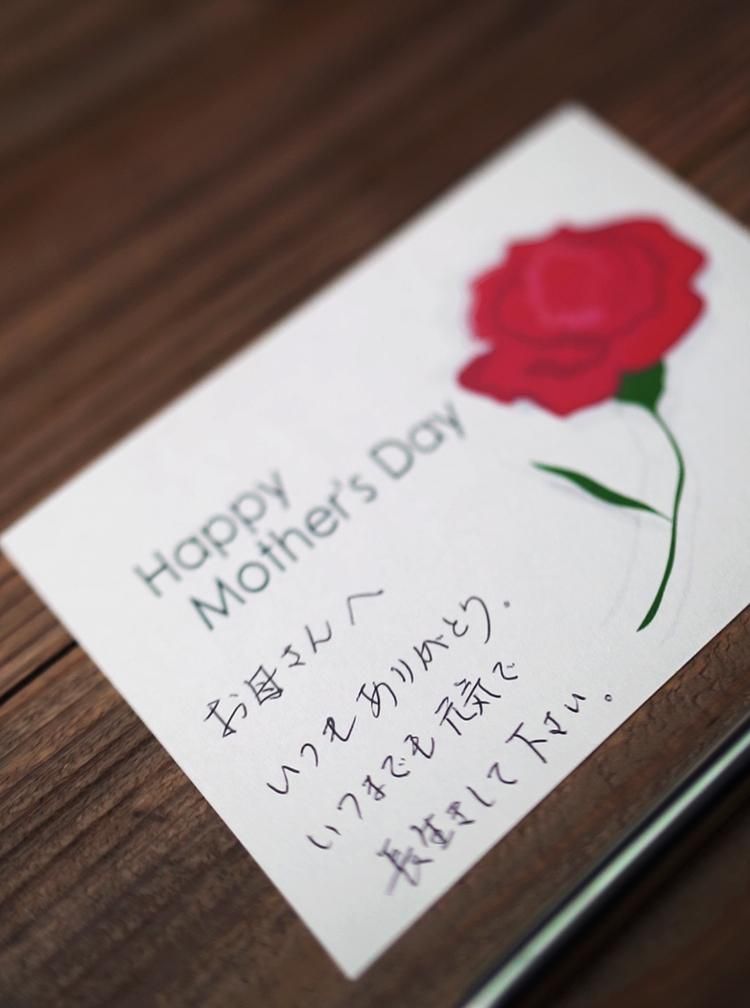 Happy
Mother's Day
お母さんへ
いつもありがとう.
いつまでも元気で
長生きして下さい。